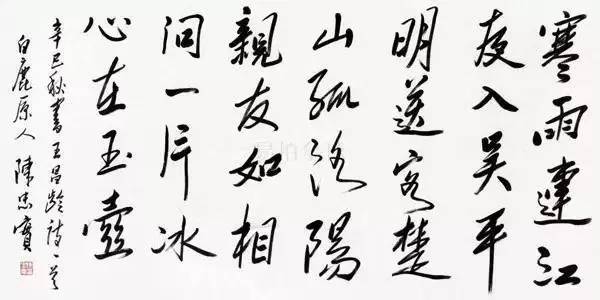 寒雨連江
夜入吳平
明送客楚
山孤洛陽
親友如相
問一片冰
心在玉壺
辛巳秋書王昌齡詩一首
白鹿原人 陳忠實